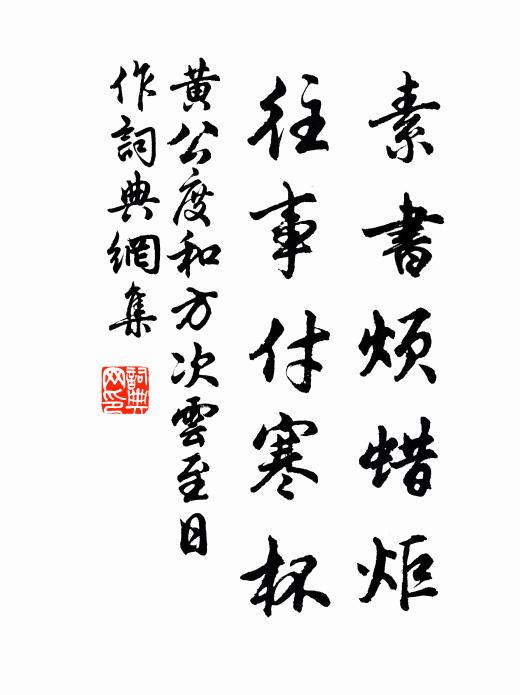 素書煩蜡炬
往事付寒杯
黄公度和方次雲至日
作詞典網集
詞典網印